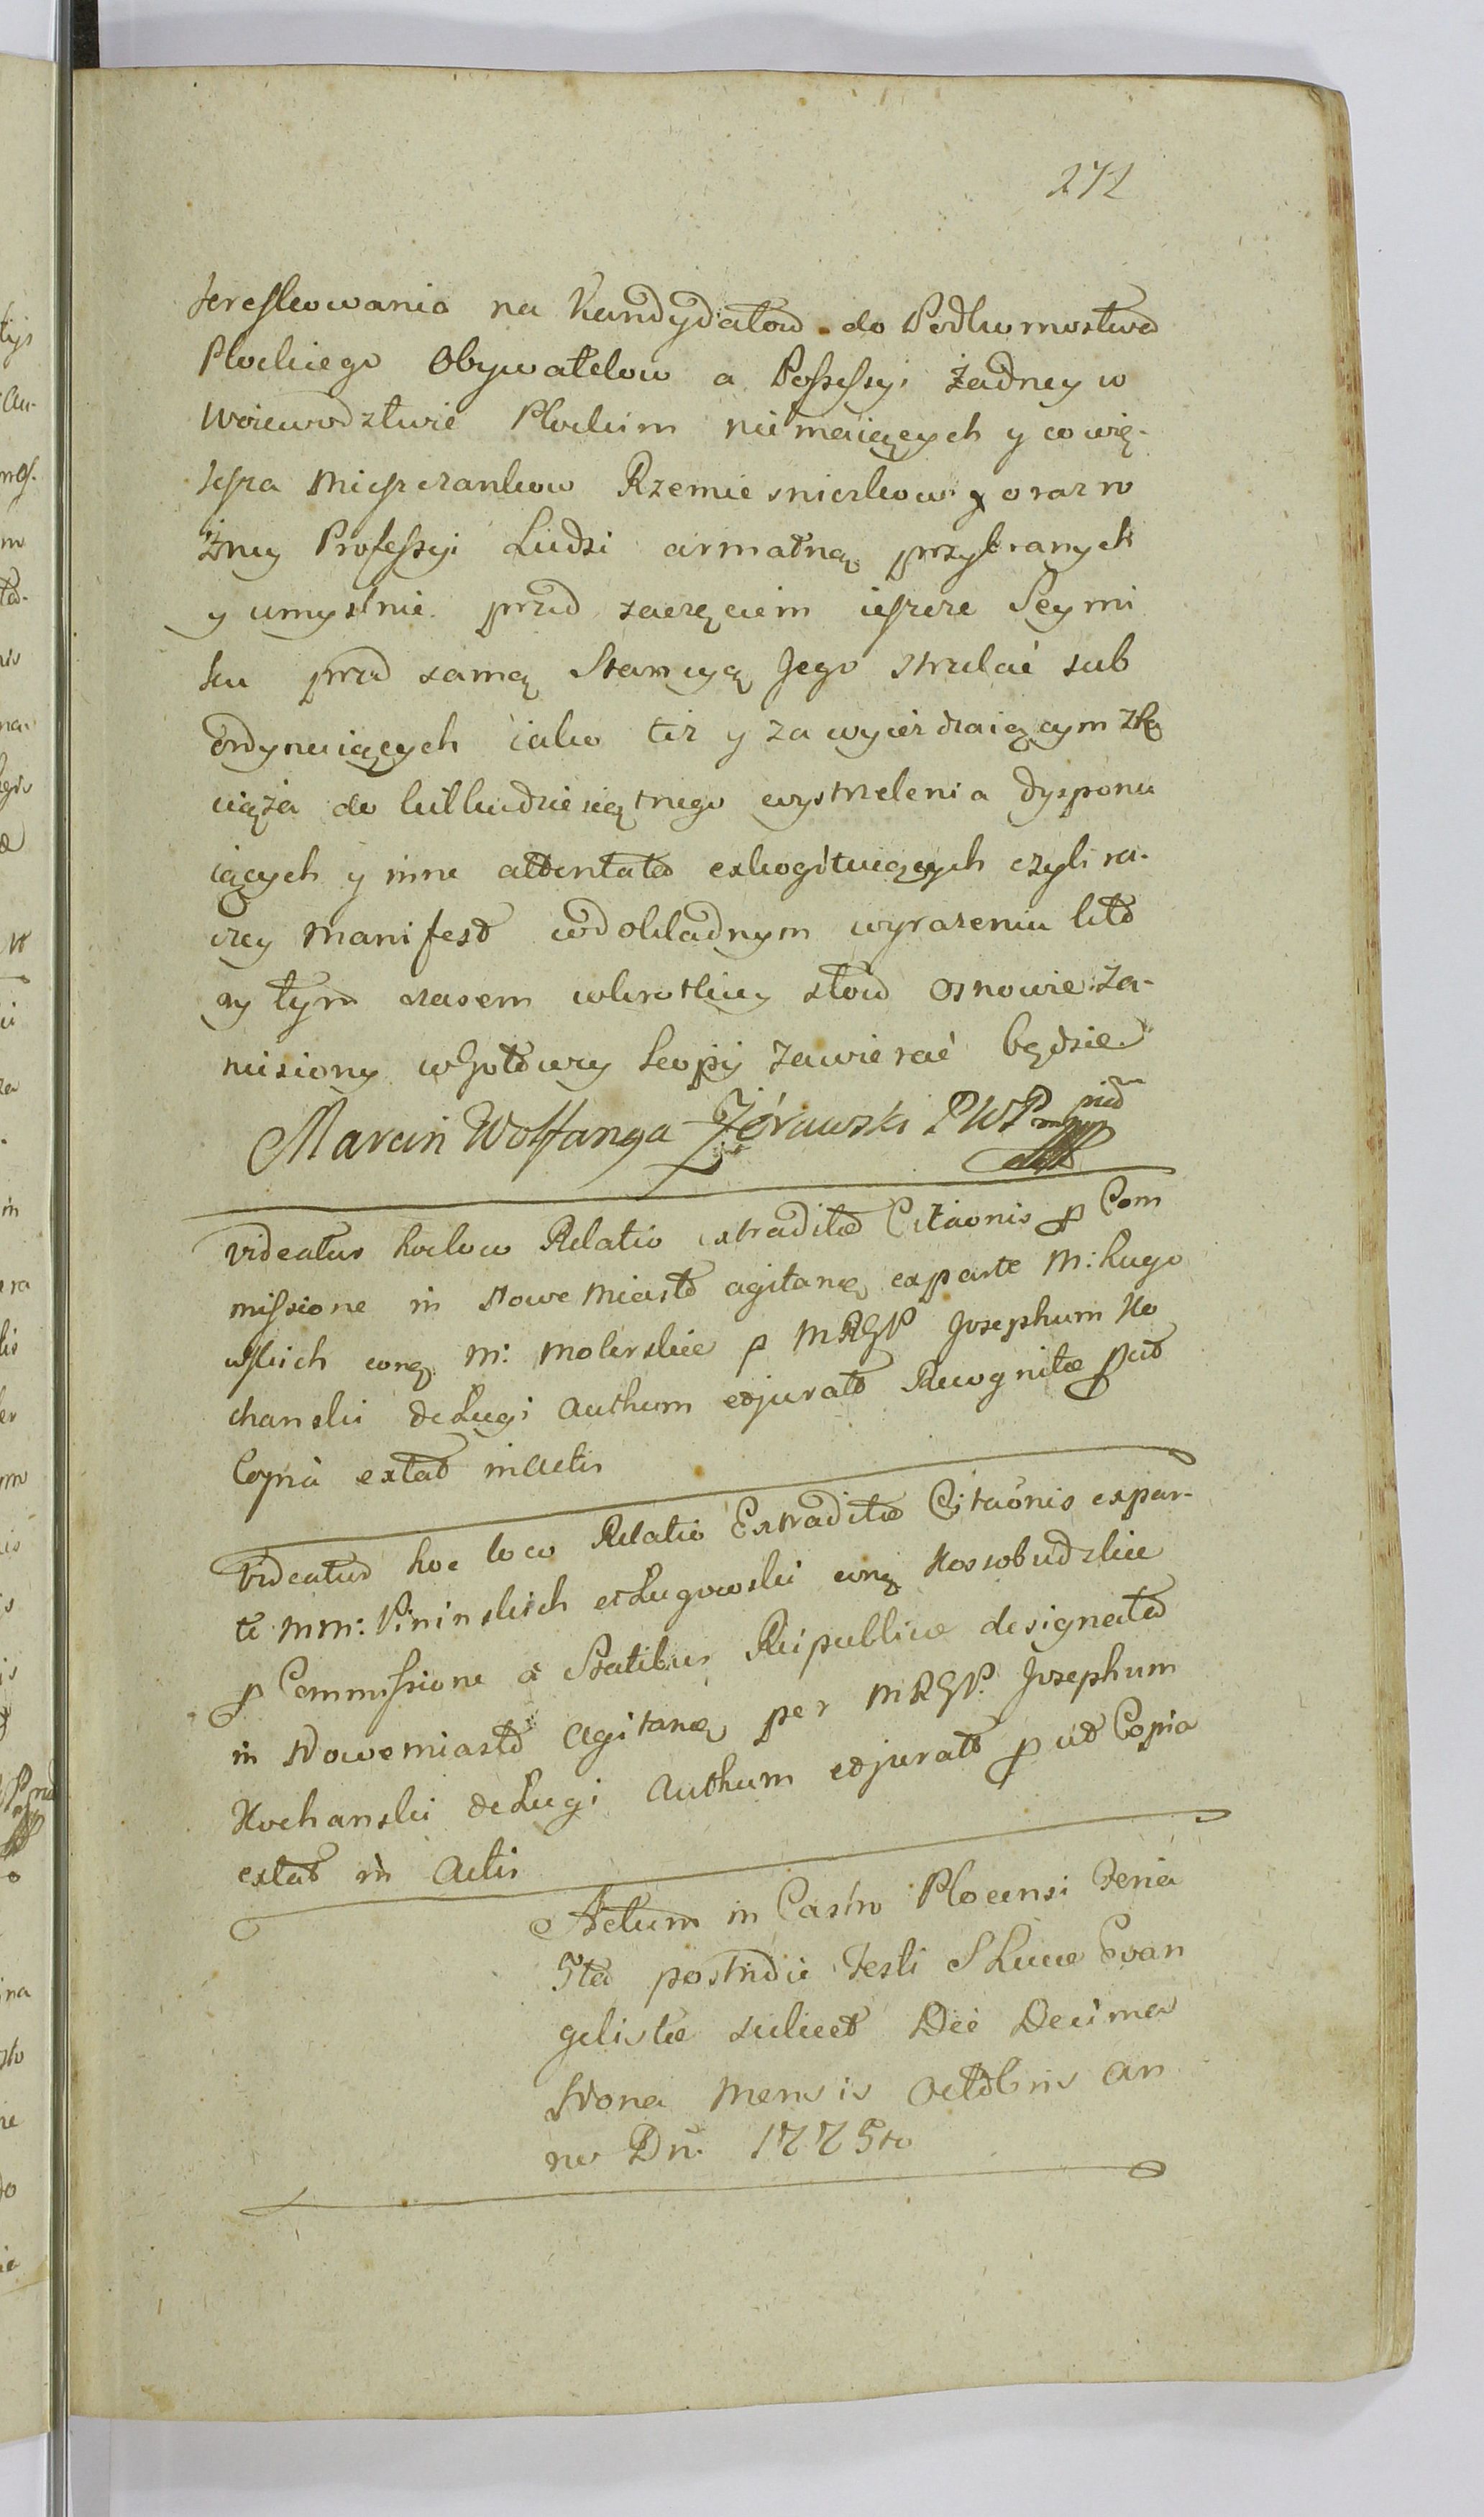 272
kreskowania na Kandydatow do Podkomostwa
Plockiego Obywatelow a Possessyi żadney w
Woiewodztwie Plockim niemaiących y co wię-
ksza Mieszczankow Rzemiesniczkow y oraz ro
żney Professyi Ludzi armatną przybranych
y umyslnie przed zaczęciem ieszcze Seymi
ku przed samą Stancyą Jego strzelać sub
ordynuiących iako tez y za wyieżdzaiącym z
do kilkudziesiątnego wystrzelenia dysponu
iących y inne attentata exkogituiących czyli ra-
czey Manifest w dokladnym wyrazeniu kto
ry tym czasem w krotkiey słow osnowie za-
niesiony w Gotowey Kopij zawierać będzie
Marcin Wolfanga Żórawski PWP mpp
Videatur hocloco Relatio extraditæ Citaonis p Com
missione in Nowe Miasto agitanę exparte M: Lugo
wskich conq M: Molerskie p MRGP Josephum Ko
chanski de Lugi Authum et jurat Recognitæ p ut
Copia extat in Actis
Videatur hoc loco Relatio Extraditæ Citaonis expar-
te MM: Pininskich et Lugowski conq Kossobudzkie
p Commissione a Statibus Reipublicæ designata
in Nowemiasto Agitanę per MRGP. Josephum
Kochanski de Lugi Authum et jurat p ut Copia
extat in Actis
Actum in Castro Plocensi Feria
5ta postridie Festi S Lucæ Evan
gelistæ scilicet Die Decima
Nona Mensis Octobris An
no Dni 1775to